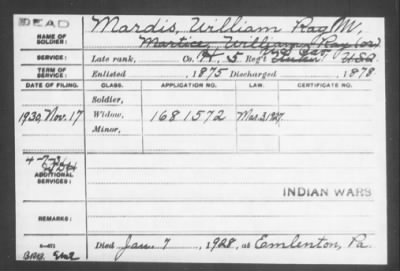 DEAD
NAME OF SOLDIER: Mardis, William Ray M,
Martice, William Ray (or)
SERVICE: Late rank, Co. H. 5 Reg't Ind Cav USA
TERM OF SERVICE: Enlisted 1875 Discharged 1878
DATE OF FILING. CLASS. APPLICATION NO. LAW. CERTIFICATE NO.
Soldier,
1930, Nov. 17 Widow, 1681572 Mar. 3, 1927.
Minor,
ADDITIONAL SERVICES:
INDIAN WARS
REMARKS:
Died Jan. 7, 1928, at Emlenton, Pa.